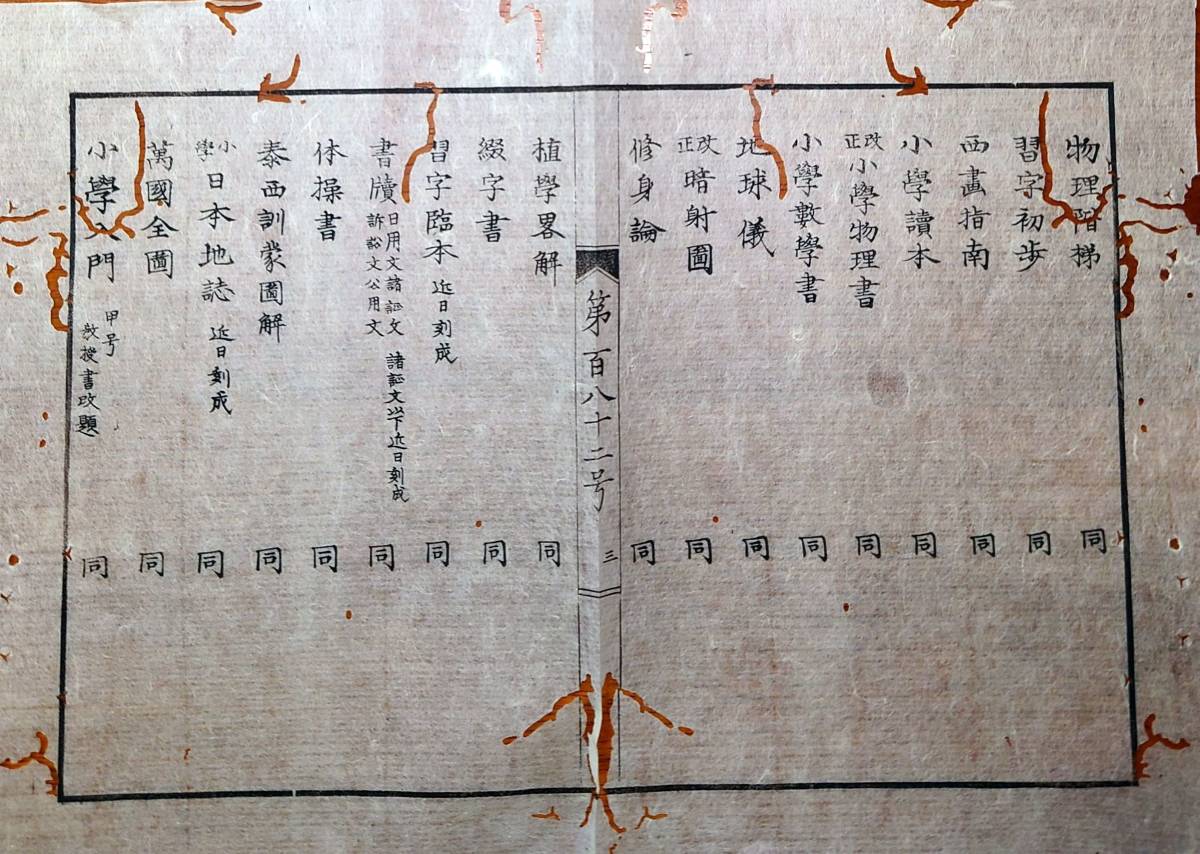 物理階梯 同
習字初歩 同
西畫指南 同
小學讀本 同
改正小學物理書 同
小學數學書 同
地球儀 同
改正暗射圖 同
修身論 同
第百八十二号 三
植學畧解 同
綴字書 同
習字臨本 近日刻成 同
書牘 日用文諸証文 訴訟文公用文 諸証文以下近日刻成 同
体操書 同
泰西訓蒙圖解 同
小學日本地誌 近日刻成 同
萬國全圖 同
小學入門 甲号 教授書改題 同